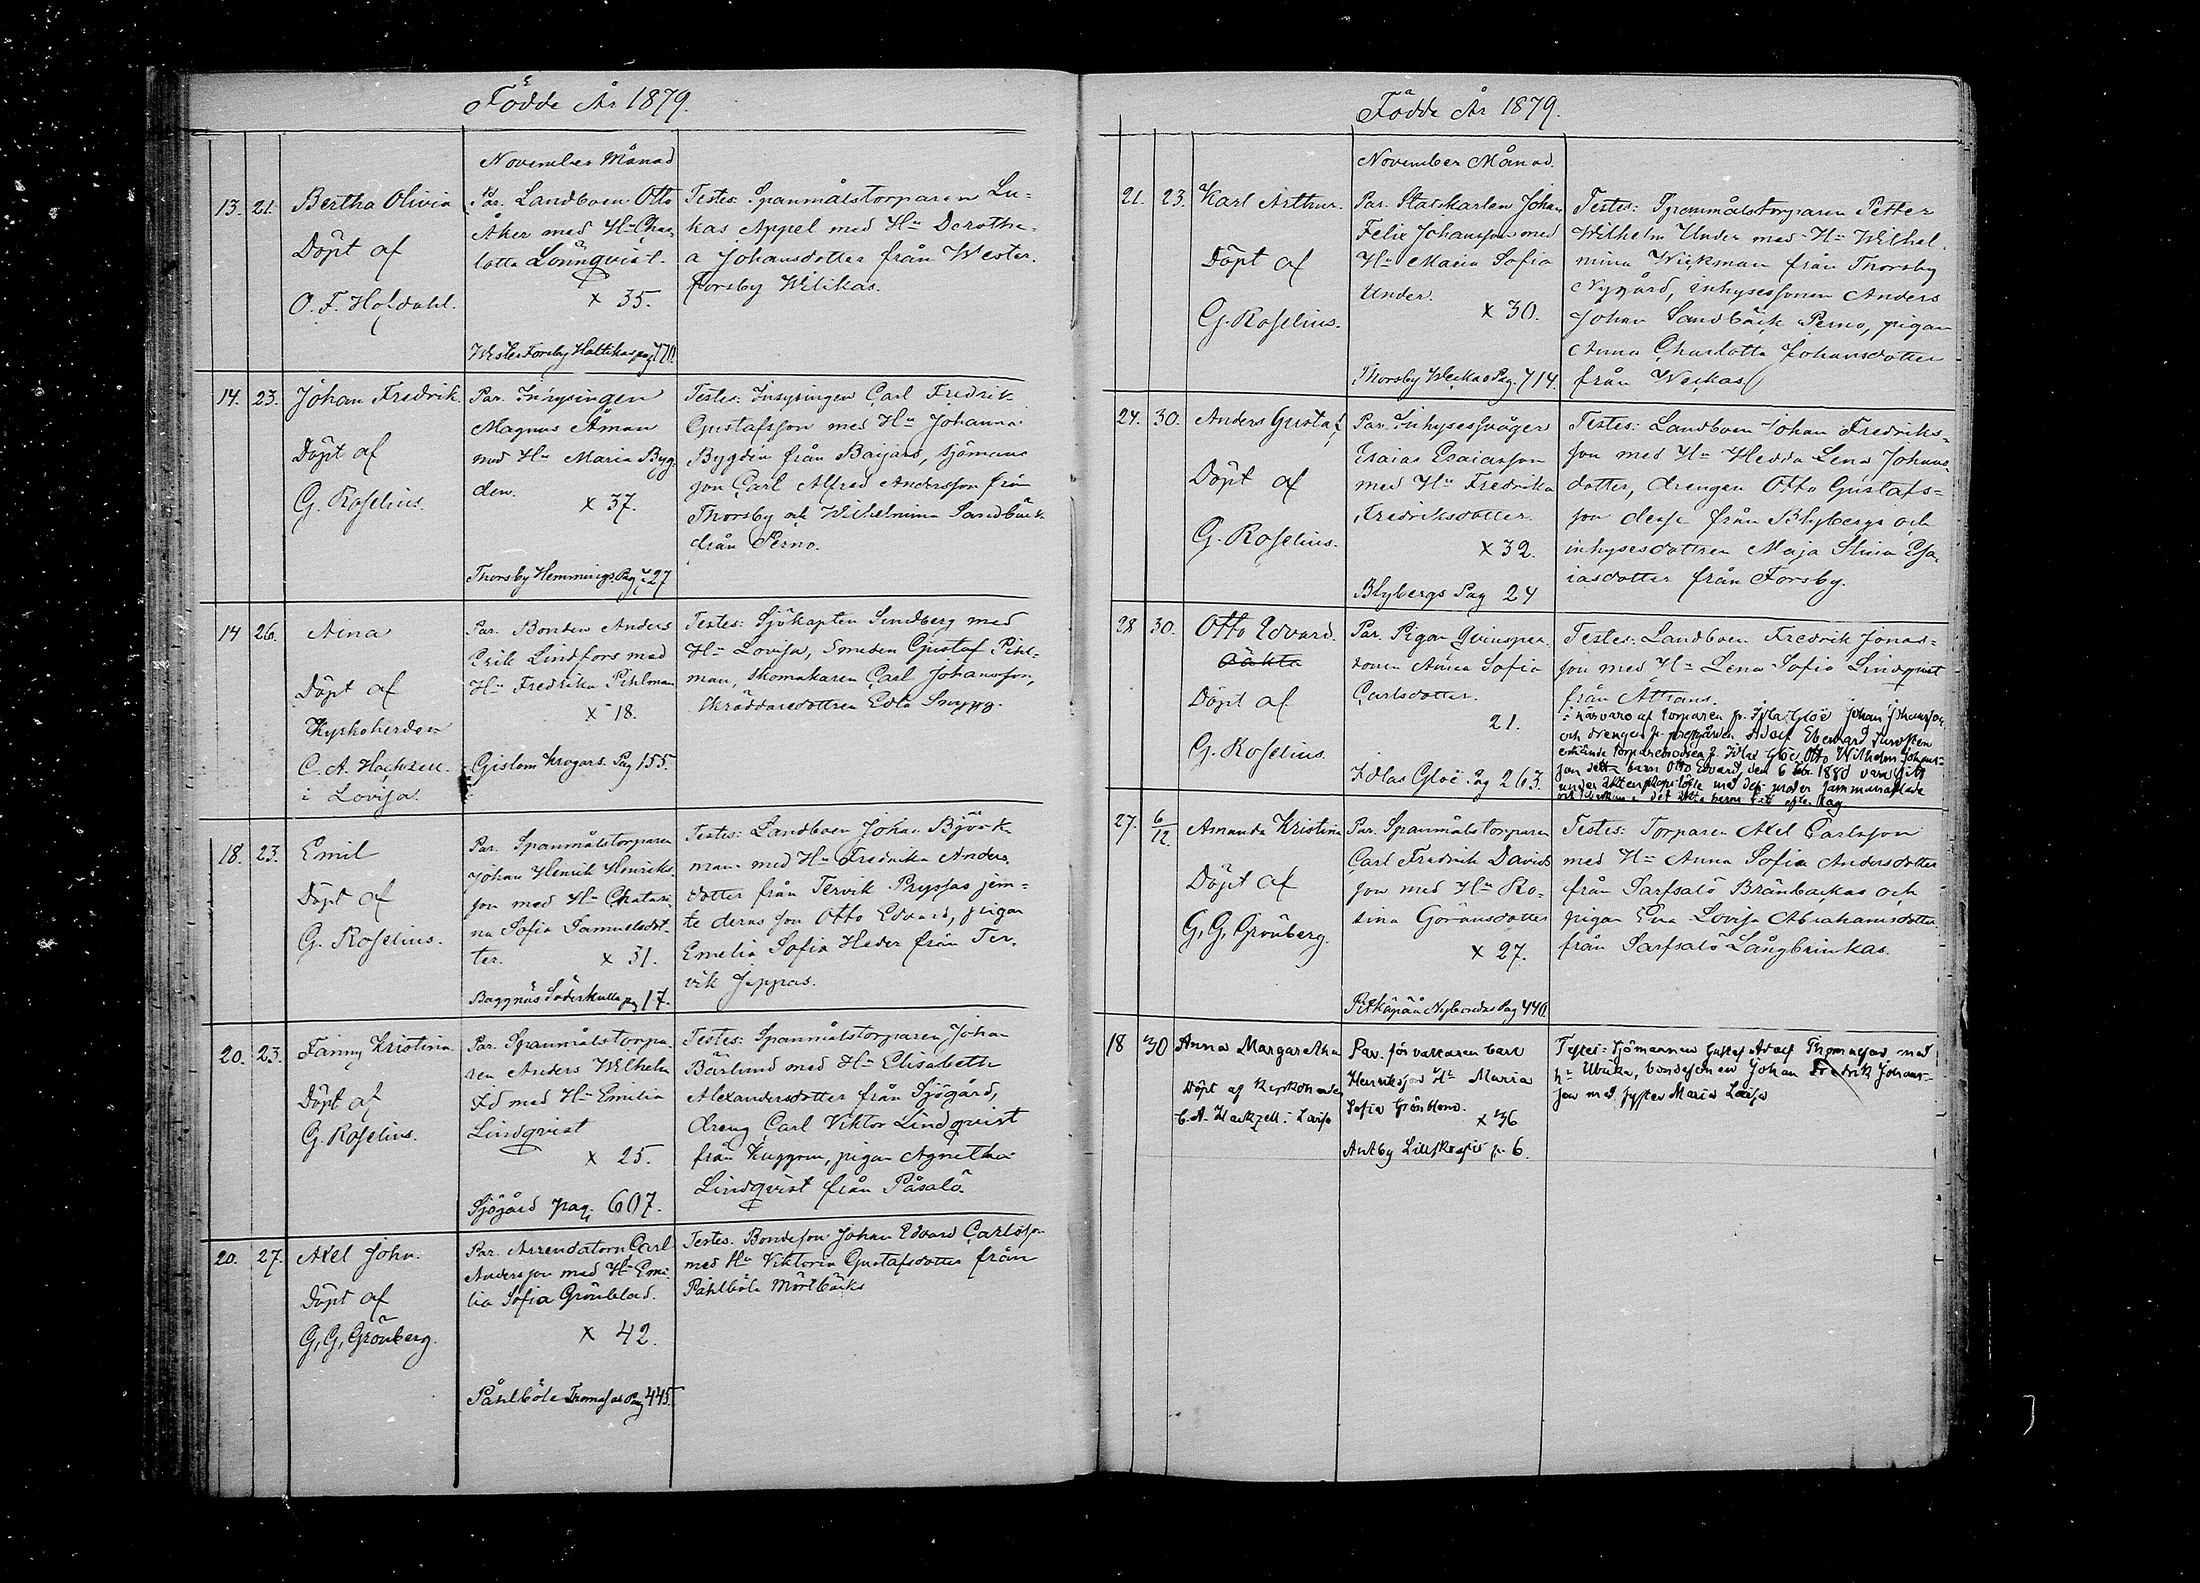 Födde År 1879.
November Månad
13. 21. Bertha Olivia
Döpt af
O. F. Hofdahl.
Par. Landboen Otto
Åker med Hu Char
lotta Lönnqvist.
x 35.
Wester Forsby Hattikas pag 770.
Testes: Spanmålstorparen Lu-
kas Appel med Hu Dorothe-
a Johansdotter från Wester
Forsby Wilikas.
14. 23. Johan Fredrik.
Döpt af
G. Roselius.
Par. Inhysingen
Magnus Åman
med Hu Maria Byg-
den.
x 37.
Thorsby Hemmings Pag 727
Testes: Inhysingen Carl Fredrik
Gustafsson med Hu Johanna
Bygdén från Baijars, sjömans
son Carl Alfred Andersson från
Thorsby och Wilhelmina Sandbäck
från Perno.
14 26. Aina
Döpt af
Kyrkoherden
C. A. Hackzell
i Lovisa.
Par. Bonden Anders
Erik Lindfors med
Hu Fredrika Pihlman
x 18.
Gislom Krogars. Pag 155.
Testes: Sjökapten Lindberg med
Hu Lovisa, Smeden Gustaf Pihl-
man, skomakaren Carl Johansson,
Skräddaredottren Edla Snygg.
18. 23. Emil
Döpt af
G. Roselius.
Par. Spanmålstorparen
Johan Henrik Henriks-
son med Hu Chatari-
na Sofia Samuelsdot-
ter.
x 31.
Baggnäs Söderkulla pag 17.
Testes: Landboen Johan Björk-
man med Hu Fredrika Anders-
dotter från Tervik Pryssas jem-
te deras son Otto Edvard, pigan
Emelia Sofia Heder från Ter-
vik Jeppas.
20. 23. Fanny Kristina
Döpt af
G. Roselius.
Par. Spanmålstorpa
ren Anders Wilhelm
Id med Hu Emilia
Lindqvist
x 25.
Sjögård pag. 607.
Testes: Spanmålstorparen Johan
Bärlund med Hu Elisabeth
Alexandersdotter från Sjögård,
dreng Carl Viktor Lindqvist
från Kuggom, pigan Agnetha
Lindqvist från Påsalö.
20. 27. Axel John.
Döpt af
G. G. Grönberg.
Par. Arrendatorn Carl
Andersson med Hu Emi
lia Sofia Grönblad.
x 42.
Påhlböle Thomasas Pag 445.
Testes. Bondeson Johan Edvard Carlsson
med Hu Viktoria Gustafsdotter från
Påhlböle Mörtbäcks
Födde År 1879.
November Månad.
21. 23. Karl Arthur.
Döpt af
G. Roselius.
Par. Statskarlen Johan
Felix Johansson med
Hu Maria Sofia
Under.
x 30.
Thorsby Weckas Pag. 714.
Testes: Spanmålstorparen Petter
Wilhelm Under med Hu Wilhel-
mina Wickman från Thorsby
Nygård, inhysessonen Anders
Johan Sandbäck Perno, pigan
Anna Charlotta Johansdotter
från Weckas
24. 30. Anders Gustaf
Döpt af
G. Roselius.
Par. Inhysessvåger
Esaias Esaiasson
med Hu Fredrika
Fredriksdotter.
x 32.
Blybergs Pag 24
Testes: Landboen Johan Fredriks-
son med Hu Hedda Lena Johans
dotter, drengen Otto Gustafs-
son desse från Blybergs och
inhysesdottren Maja Stina Esa-
iasdotter från Forsby.
28 30. Otto Edvard.
oäkta
Döpt af
G. Roselius.
Par. Pigan Qvinsper
sonen Anna Sofia
Carlsdotter.
21.
Idlas Gloë Pag 263.
Testes: Landboen Fredrik Jonas-
son med Hu Lena Sofia Lindqvist
från
i närvaro af torparen p. Idlas Gloë Johan Johansson
och drengen p. prestgården Adolf Eberhard
erkände torparesonen p. Idlas Gloë Otto Wilhelm Johans-
son detta barn Otto Edvard den 6 1880 vara
under äktenskapslöfte med dess moder sammanaflade
27. 6/12. Amanda Kristina
Döpt af
G. G. Grönberg.
Par. Spanmålstorparen
Carl Fredrik Davids
son med Hu Ro-
sina Göransdotter
x 27.
Pitkäpää Nybondas Pag 440.
Testes: Torparen Axel Carlsson
med Hu Anna Sofia Andersdotter
från Sarfsalö Bränbackas och
pigan Eva Lovisa Abrahamsdotter
från Sarfsalö Långbrinkas.
18 30 Anna Margaretha
Döpt af Kyrkoherden
C. A. Hackzell i Lovisa
Par. förvaltaren Carl
Henriksson Hu Maria
Sofia Grönblom.
x 36
Antby Lillskrafis p. 6.
Testes: Sjömannen Gustaf Adolf Thomasson med
hu Ulrika, bondesonen Johan Fredrik Johans-
son med syster Maria Lovisa